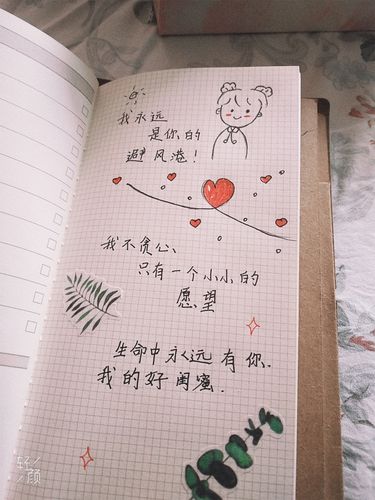 我永远
是你的
避风港!
我不贪心、
只有一个小小的
愿望
生命中永远有你.
我的好闺蜜.
轻颜